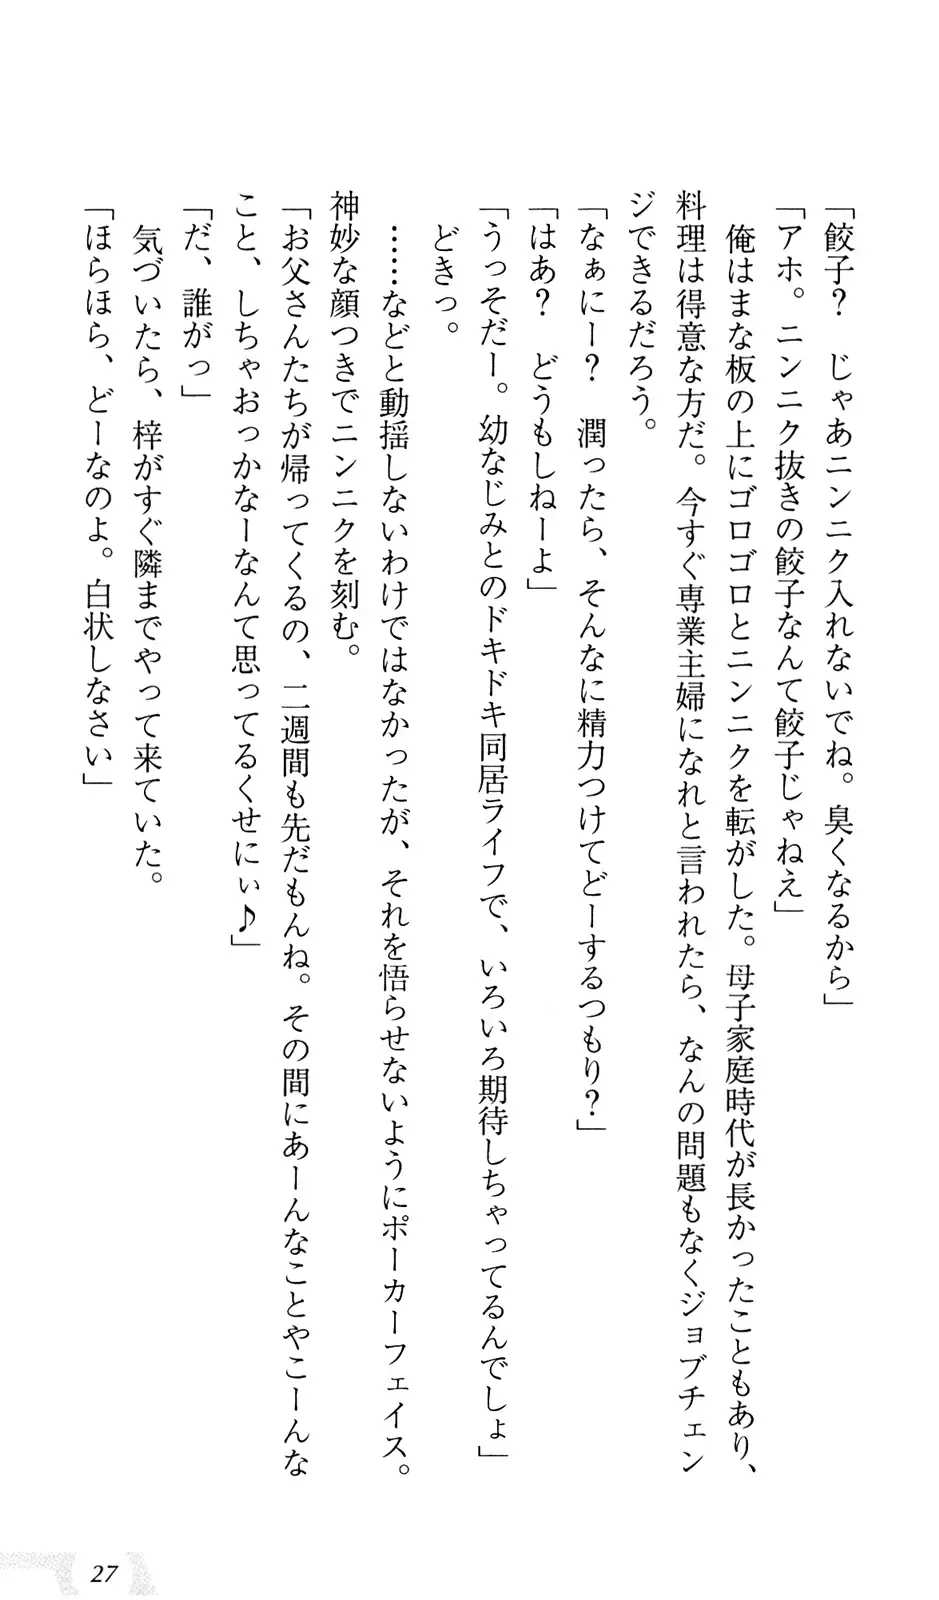 「餃子？　じゃあニンニク入れないでね。臭くなるから」
「アホ。ニンニク抜きの餃子なんて餃子じゃねえ」
　俺はまな板の上にゴロゴロとニンニクを転がした。母子家庭時代が長かったこともあり、
料理は得意な方だ。今すぐ専業主婦になれと言われたら、なんの問題もなくジョブチェン
ジできるだろう。
「なぁにー？　潤ったら、そんなに精力つけてどーするつもり？」
「はあ？　どうもしねーよ」
「うっそだー。幼なじみとのドキドキ同居ライフで、いろいろ期待しちゃってるんでしょ」
　どきっ。
　……などと動揺しないわけではなかったが、それを悟らせないようにポーカーフェイス。
神妙な顔つきでニンニクを刻む。
「お父さんたちが帰ってくるの、二週間も先だもんね。その間にあーんなことやこーんな
こと、しちゃおっかなーなんて思ってるくせにぃ♪」
「だ、誰がっ」
　気づいたら、梓がすぐ隣までやって来ていた。
「ほらほら、どーなのよ。白状しなさい」
27